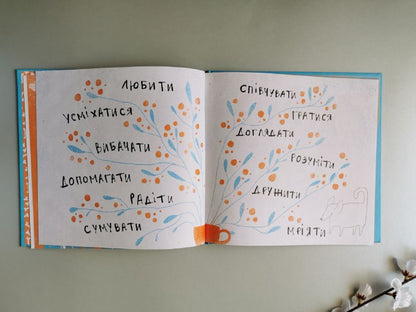 ЛЮБИТИ
УСМІХАТИСЯ
ВИБАЧАТИ
ДОПОМАГАТИ
РАДІТИ
СУМУВАТИ
СПІВЧУВАТИ
ГРАТИСЯ
ДОГЛЯДАТИ
РОЗУМІТИ
ДРУЖИТИ
МРІЯТИ